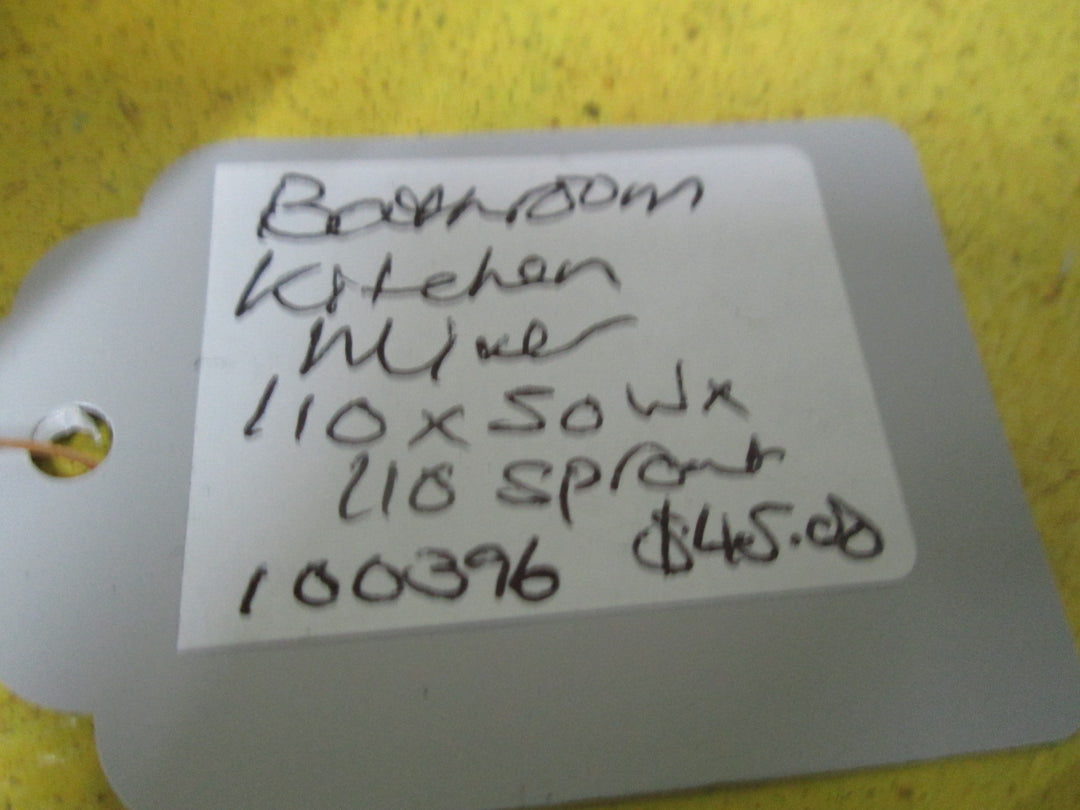 Bathroom
Kitchen
Mixer
110 x 50 W x
210 sprout
100396 $45.00